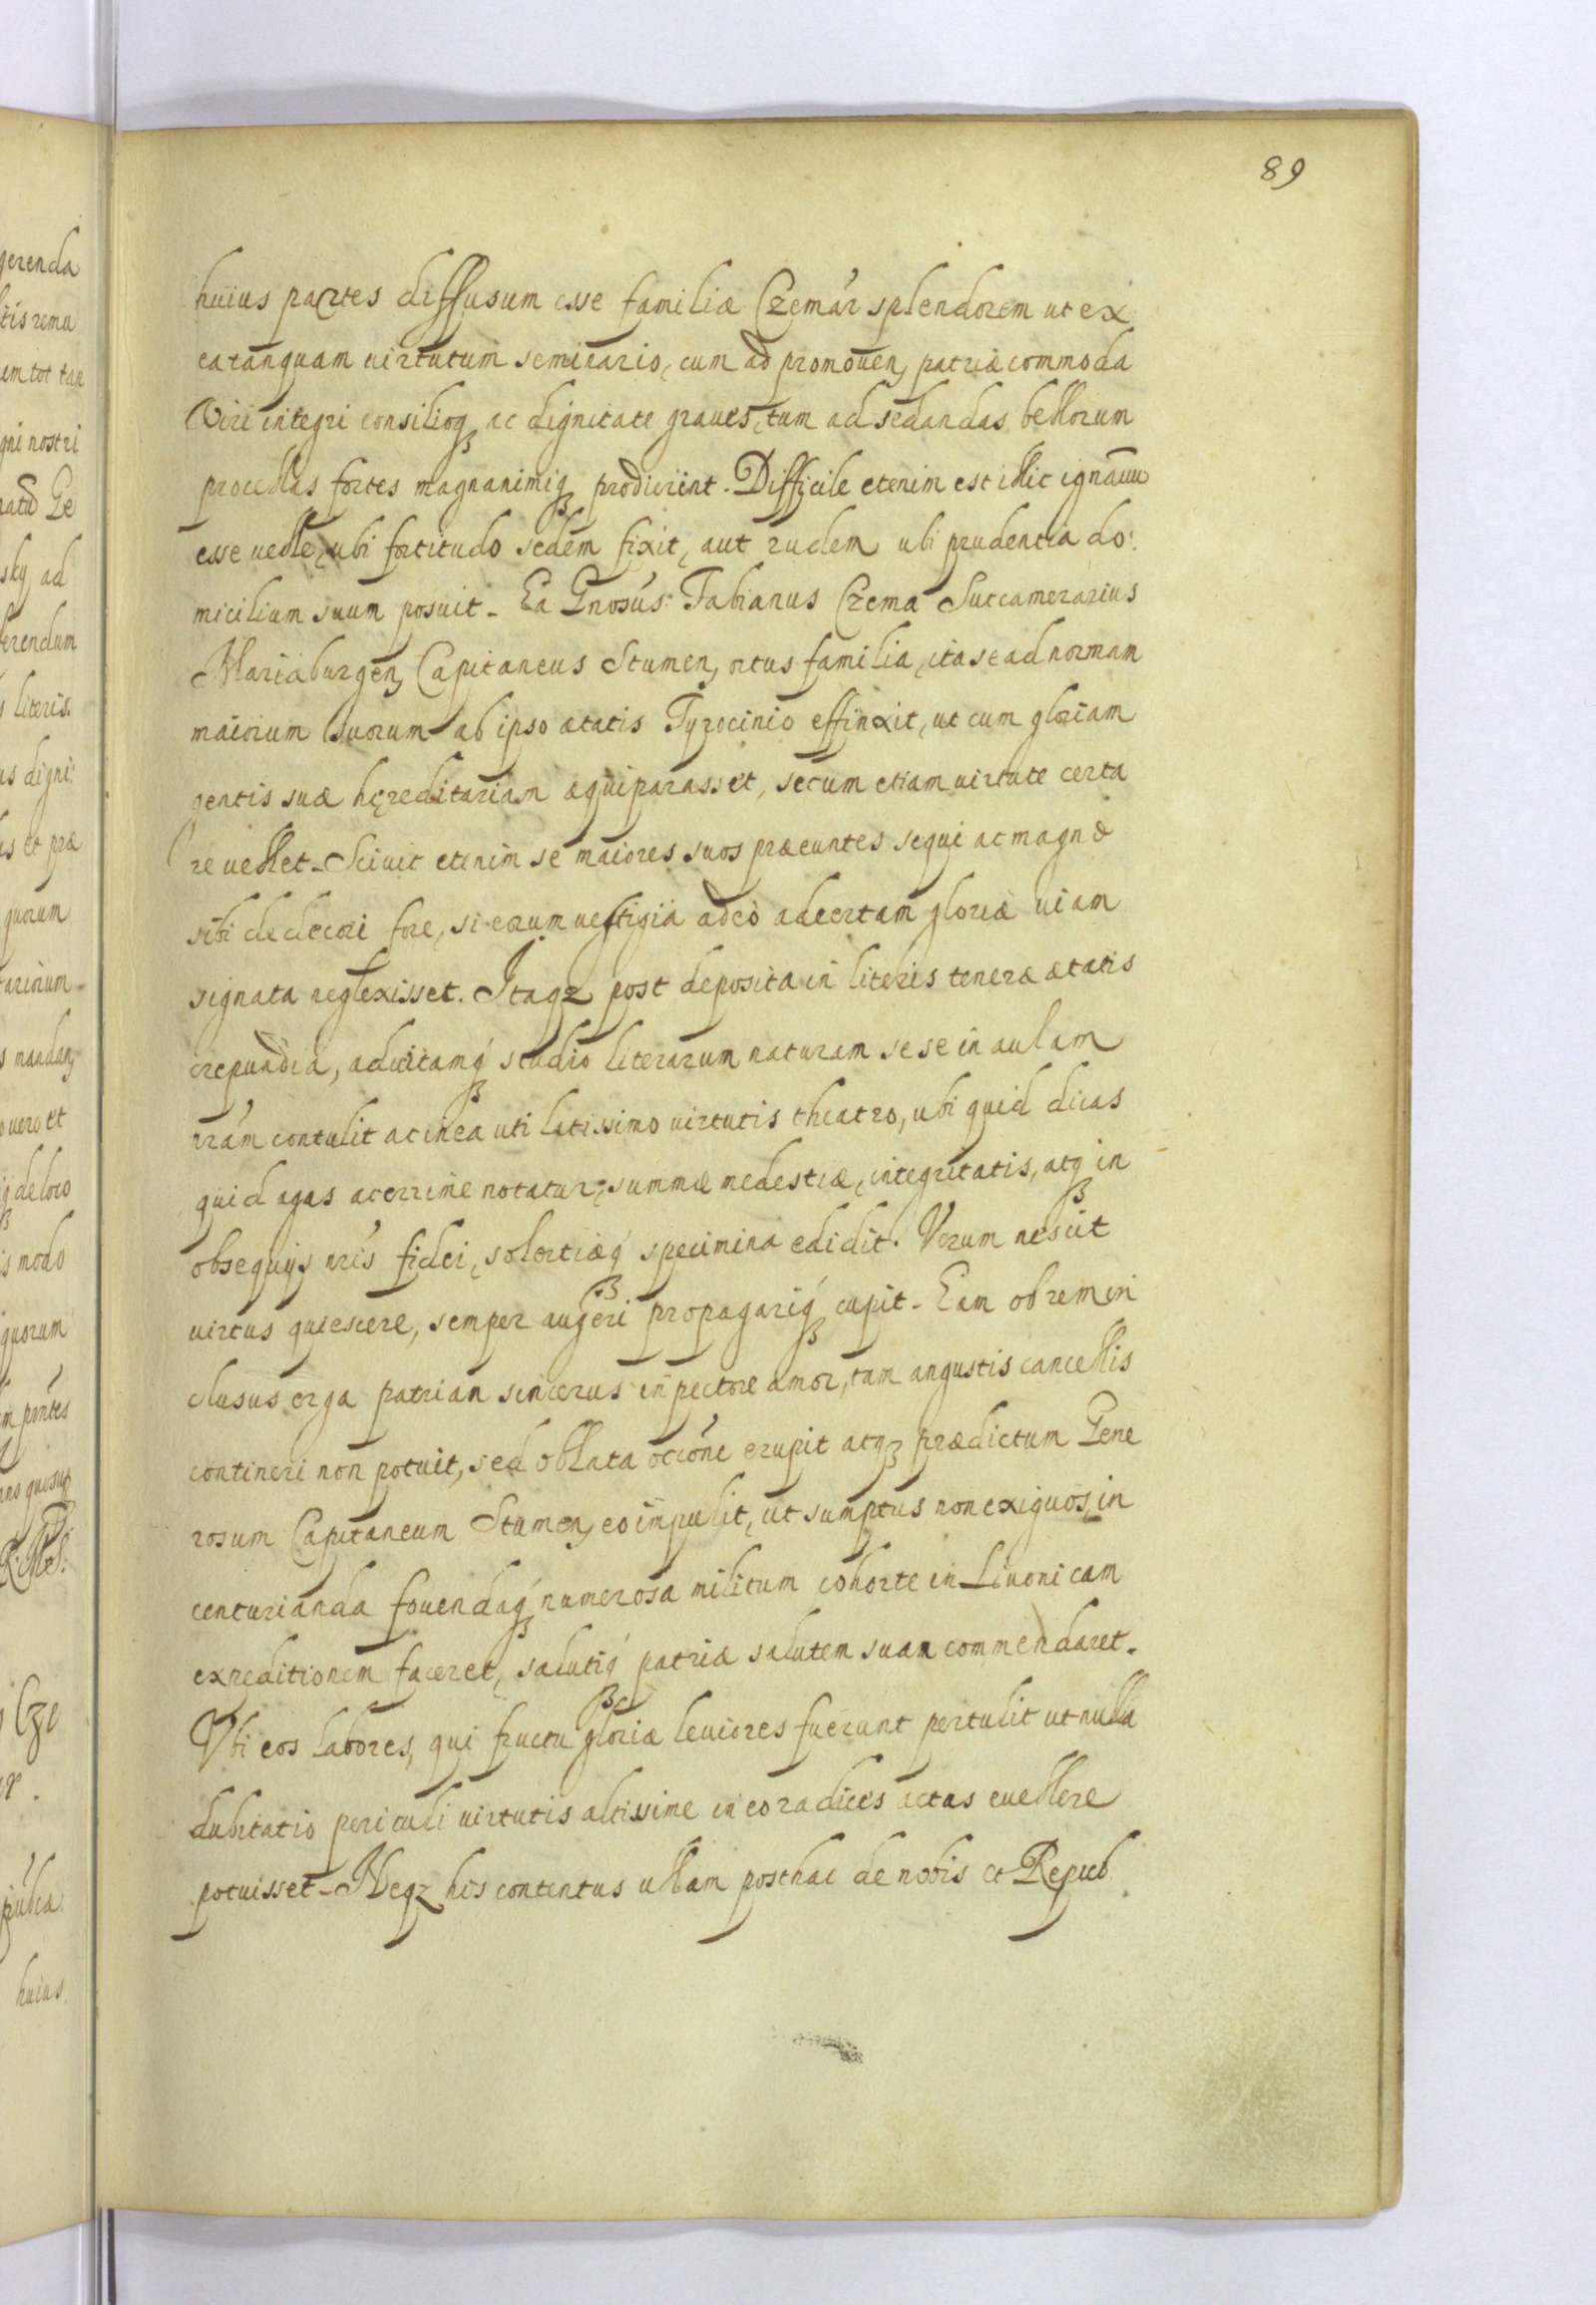 89
huius partes diffusum esse familiæ Czemár splendorem ut ex
ea tanquam uirtutum seminario, cum ad promouen, patriæ commoda
Viri integri consilioq₃ ac dignitate graues, tum ad sedandas bellorum
procellas fortes magnanimiq₃ prodierint. Difficile etenim est illic ignauu
esse uelle, ubi fortitudo sedem fixit, aut rudem ubi prudentia do:
micilium suum posuit. Ea Gnosús: Fabianus Czema Succamerarius
Mariæburgen, Capitaneus Stumen, ortus familia, ita se ad normam
maiorum suorum ab ipso ætatis Tyrocinio effinxit, ut cum gloriam
gentis suæ hęreditariam æquiparasset, secum etiam uirtute certa
re uellet. Sciuit etenim se maiores suos præeuntes sequi ac magno
sibi dedecori fore, si eorum uestigia adeò ad certam gloriæ uiam
signata neglexisset. Itaqz post deposita in literis teneræ ætatis
crepundia, aduitamq́₃ studio literarum naturam sese in aulam
nrám contulit ac in ea uti latissimo uirtutis theatro, ubi quid dicas
quid agas acerrime notatur, summæ modestiæ, integritatis, atq₃ in
obsequijs nrís fidei, solertiæq́₃ specimina edidit. Verum nescit
uirtus quiescere, semper augeri propagariq́₃ cupit. Eam ob rem in
clusus erga patriam sincerus in pectore amor, tam angustis cancellis
contineri non potuit, sed oblata occóne erupit atq₃ prædictum Gene
rosum Capitaneum Stumen, eo impulit, ut sumptus non exiguos, in
centurianda fouendaq́₃ numerosa militum cohorte in Liuonicam
expeditionem faceret, salutiq́₃ patriæ salutem suam commendaret.
Vbi eos labores, qui fructu gloriæ leuiores fuerunt pertulit ut nulla
dubitatio periculi uirtutis altissime in eo radices actas euellere
potuisset. Neqz his contentus ullam posthac de nobis et Repub.
gerenda
tis remu
em tot tan
gni nostri
sky, ad
ferendum
literis.
us digni:
is et præ
quorum
s mandan,
o uero et
is modo
quorum
huius.